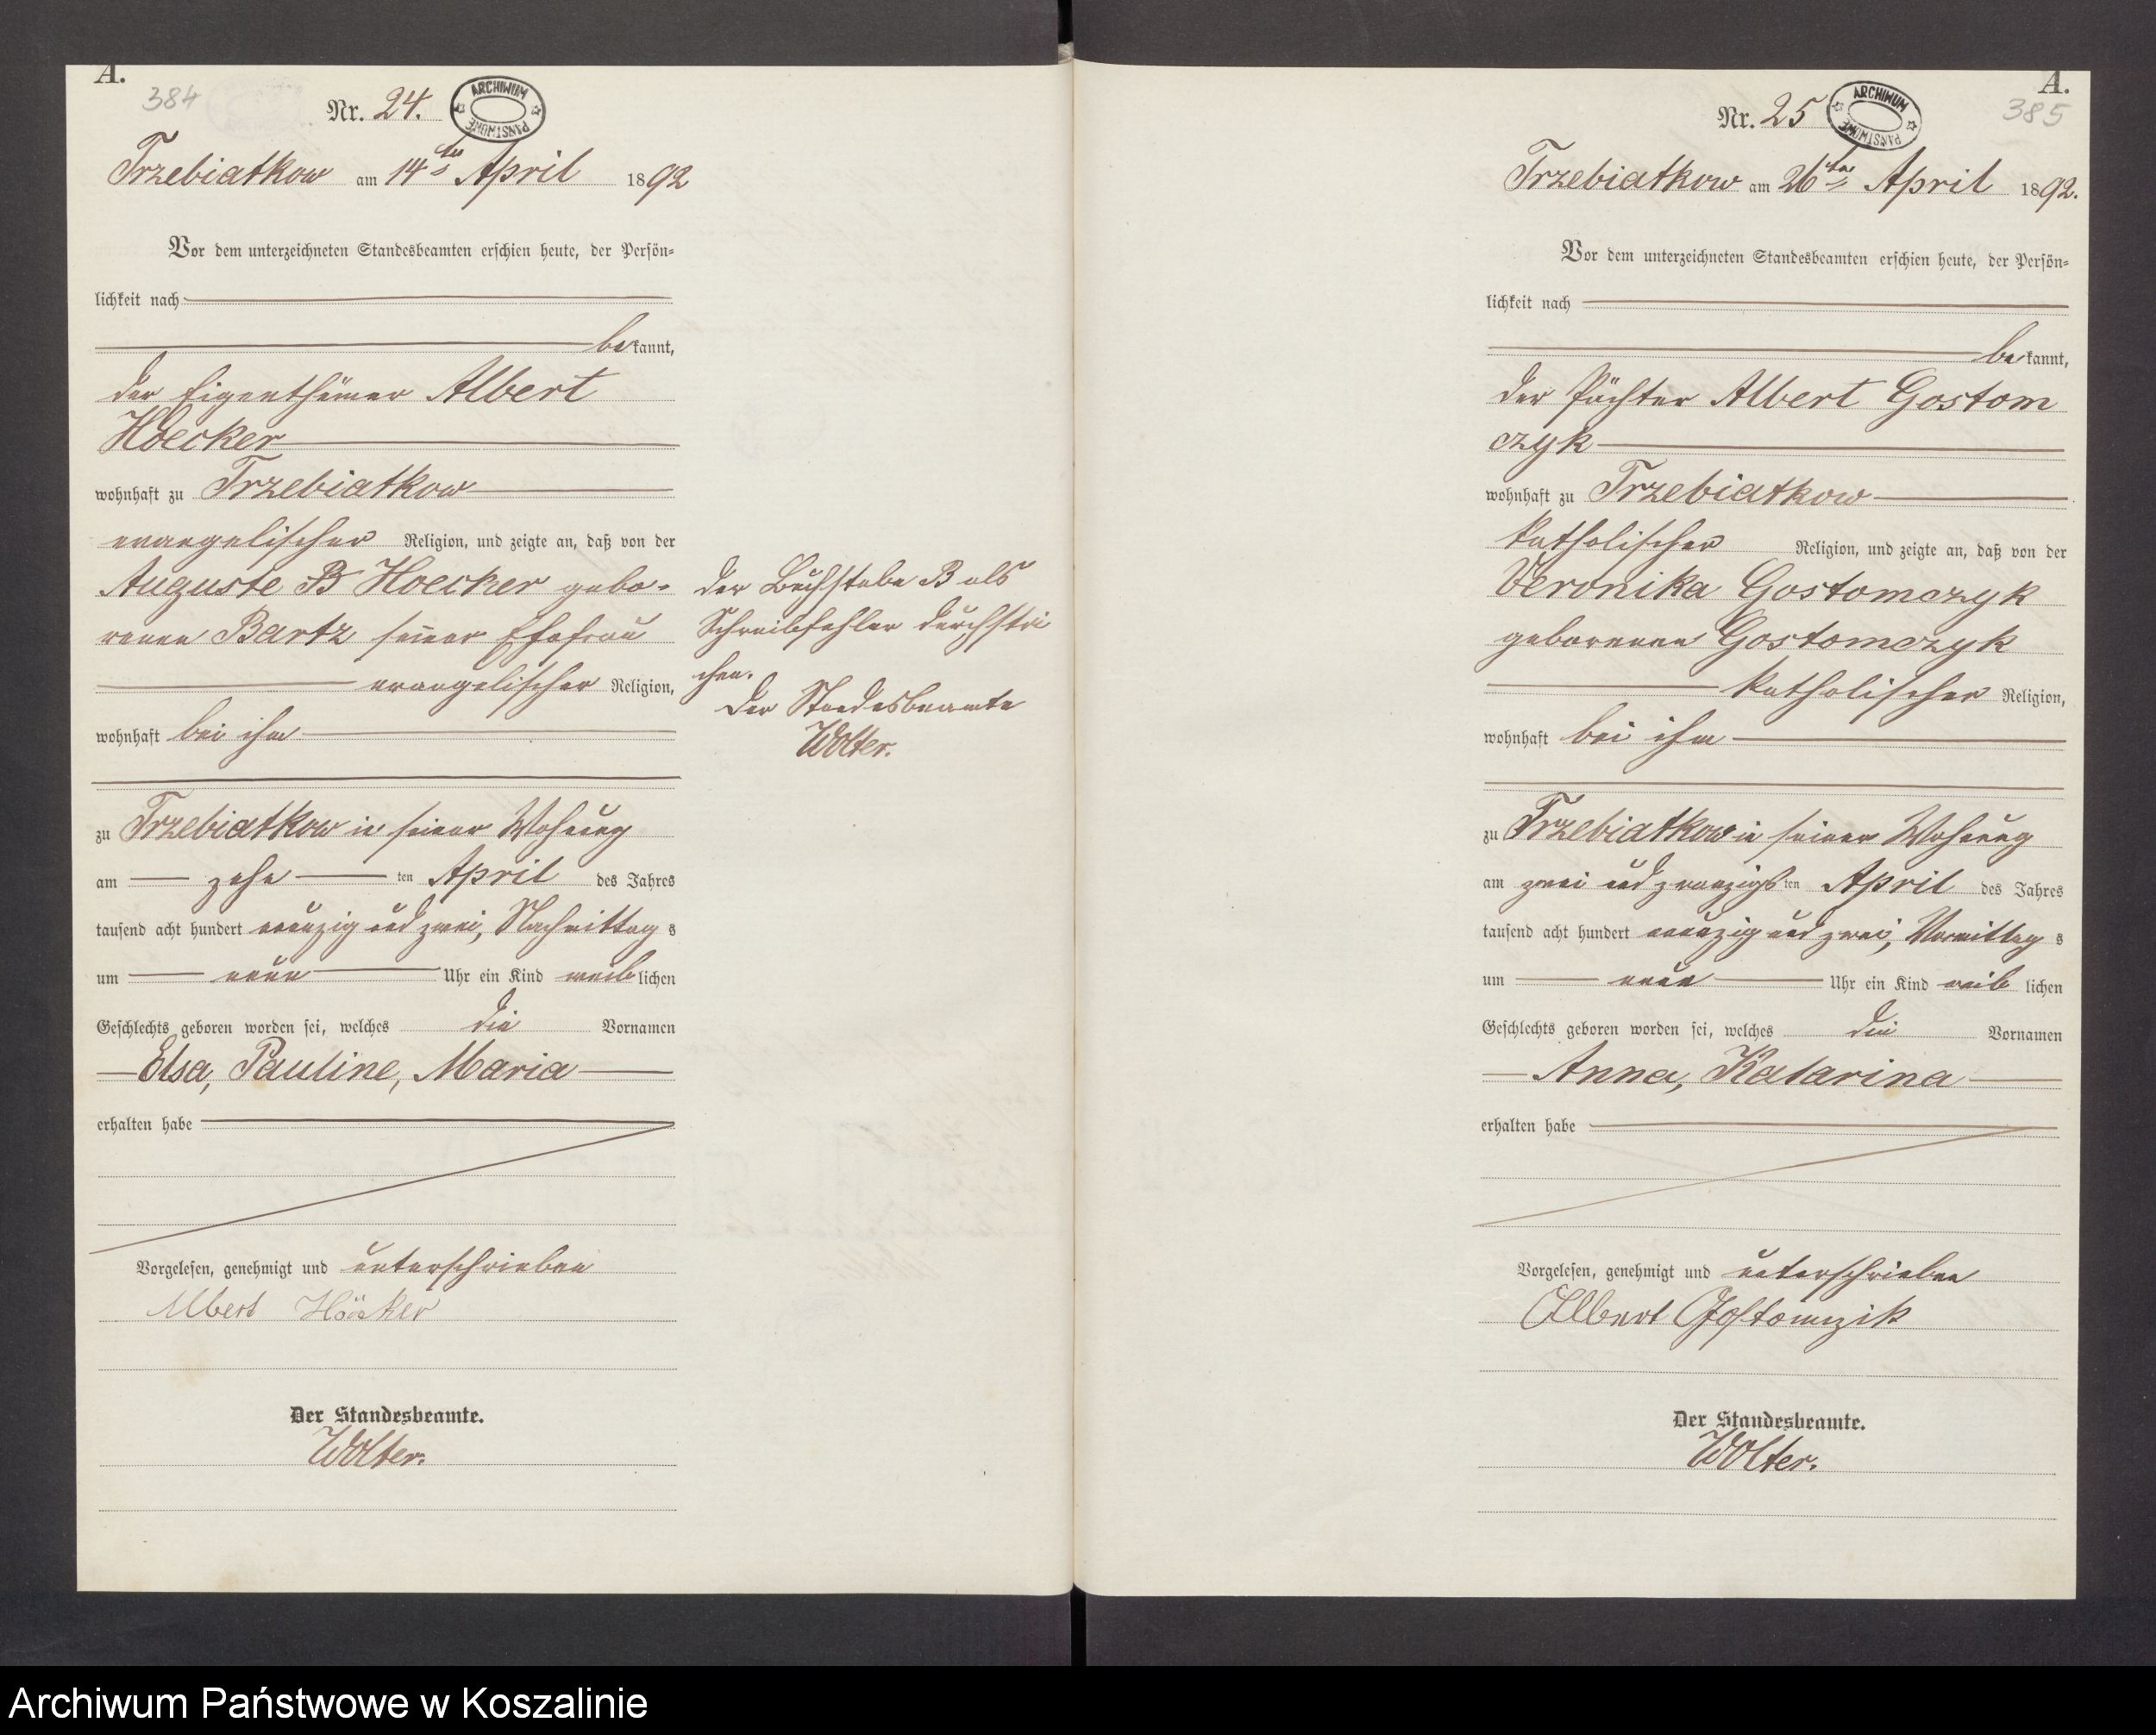 A.
384
Nr. 24.
ARCHIWUM PAŃSTWOWE
Trzebiatkow am 14ten April 1892
Vor dem unterzeichneten Standesbeamten erschien heute, der Persön-
lichkeit nach
bekannt,
der Eigenthümer Albert
Hoecker
wohnhaft zu Trzebiatkow
evangelischer Religion, und zeigte an, daß von der
Auguste B Hoecker gebo-
renen Bartz seiner Ehefrau
evangelischer Religion,
wohnhaft bei ihm
zu Trzebiatkow in seiner Wohnung
am zehn ten April des Jahres
tausend acht hundert neunzig und zwei, Nachmittag s
um neun Uhr ein Kind weiblichen
Geschlechts geboren worden sei, welches die Vornamen
Elsa, Pauline, Maria
erhalten habe
Vorgelesen, genehmigt und unterschrieben
Albert Höcker
Der Standesbeamte.
Wolter.
der Buchstabe B als
Schreibfehler durchstri
chen.
Der Standesbeamte
Wolter.
A.
385
Nr. 25
ARCHIWUM PAŃSTWOWE
Trzebiatkow am 26ten April 1892.
Vor dem unterzeichneten Standesbeamten erschien heute, der Persön-
lichkeit nach
bekannt,
der Pächter Albert Gostom
czyk
wohnhaft zu Trzebiatkow
katholischer Religion, und zeigte an, daß von der
Veronika Gostomczyk
geborenen Gostomczyk
katholischer Religion,
wohnhaft bei ihm
zu Trzebiatkow in seiner Wohnung
am zwei und zwanzigsten April des Jahres
tausend acht hundert neunzig und zwei, Vormittag s
um neun Uhr ein Kind weib lichen
Geschlechts geboren worden sei, welches die Vornamen
Anna, Katarina
erhalten habe
Vorgelesen, genehmigt und unterschrieben
Albert Gostomzik
Der Standesbeamte.
Wolter.
Archiwum Państwowe w Koszalinie